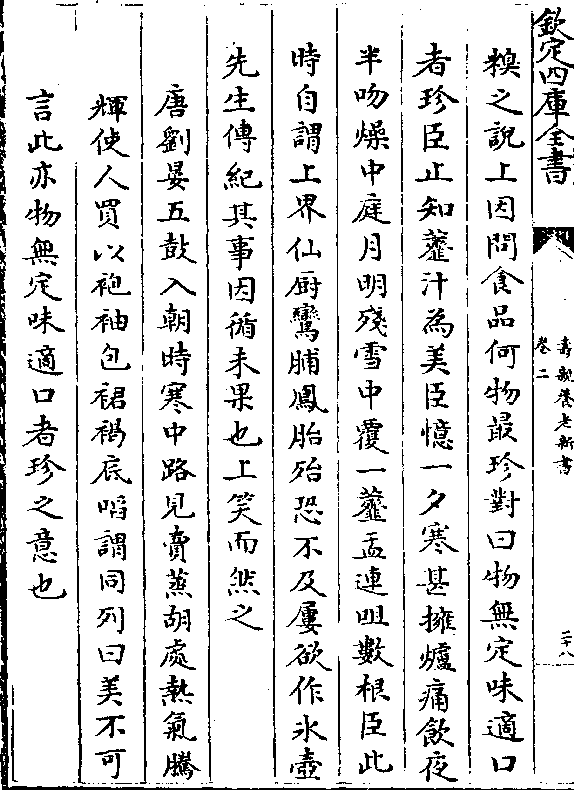 欽定四庫全書
壽親養老新書
卷二
二十八
糗之說上因問食品何物最珍對曰物無定味適口
者珍臣止知虀汁為美臣憶一夕寒甚擁爐痛飲夜
半吻燥中庭月明殘雪中覆一虀盂連咀數根臣此
時自謂上界仙厨鸞脯鳳胎殆恐不及屢欲作氷壺
先生傳紀其事因循未果也上笑而然之
唐劉晏五鼓入朝時寒中路見賣蒸胡處熱氣騰
輝使人買以袍袖包裙褐底㗖謂同列曰美不可
言此亦物無定味適口者珍之意也